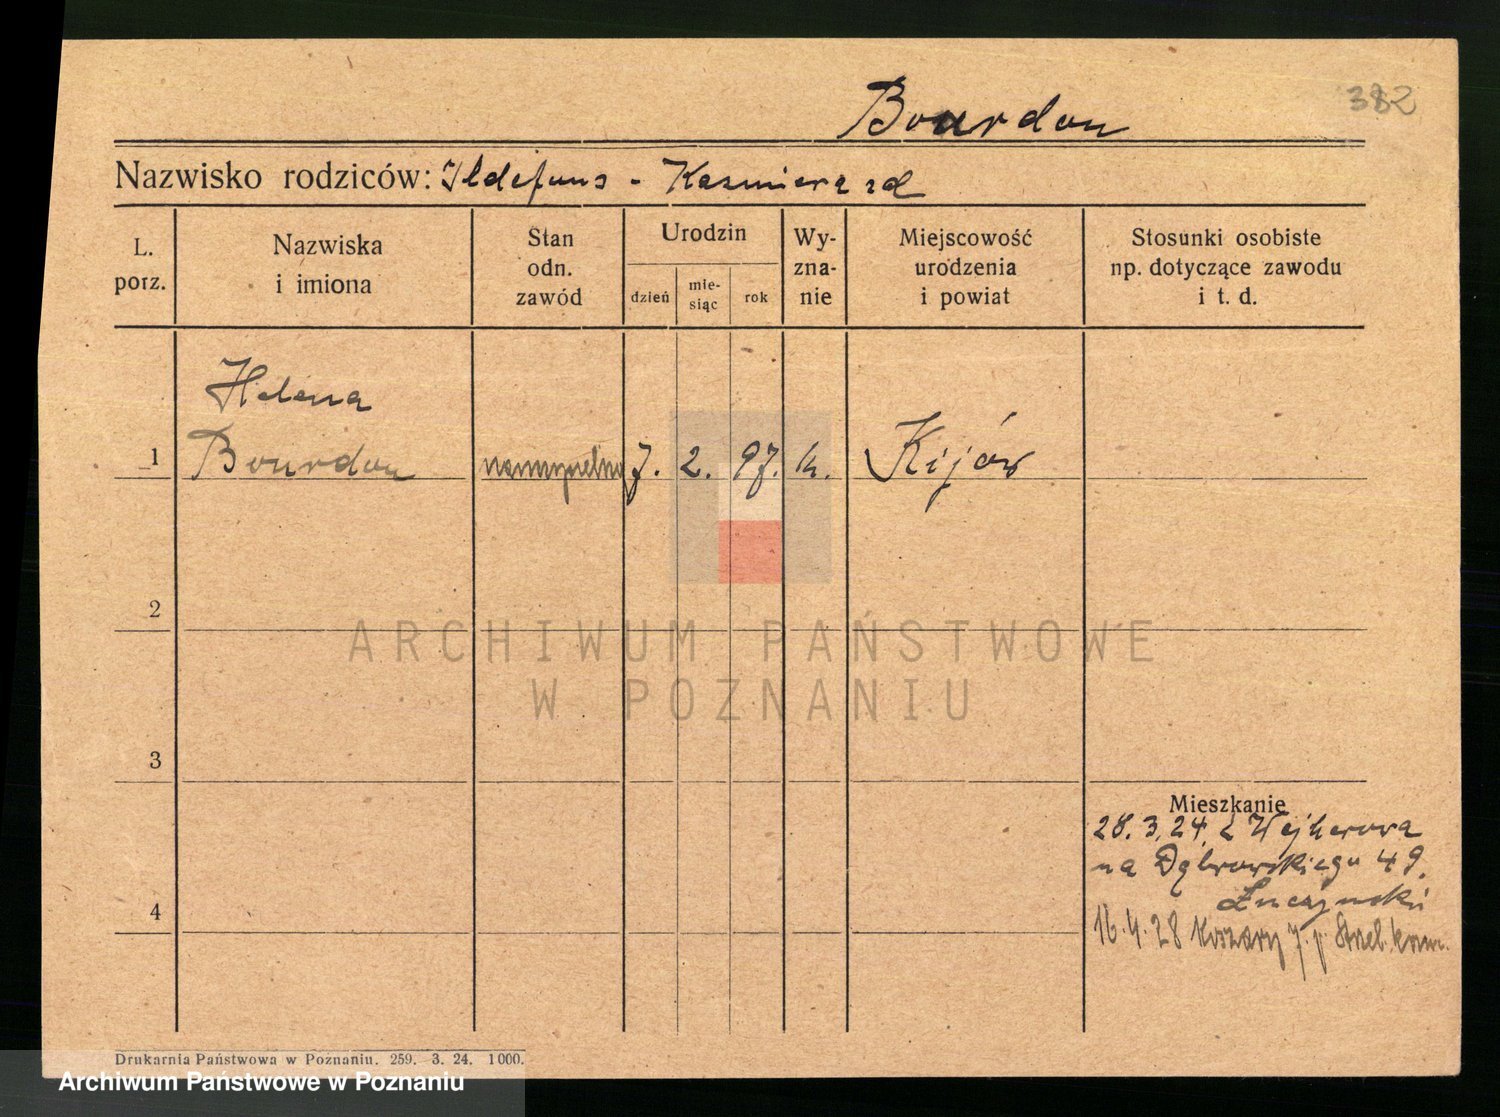 Bourdon
382
Nazwisko rodziców: Ildefons - Kazimiera zd
L. porz.
Nazwiska i imiona
Stan odn. zawód
Urodzin
dzień
mie-siąc
rok
Wy-zna-nie
Miejscowość urodzenia i powiat
Stosunki osobiste np. dotyczące zawodu i t. d.
Helena
1 Bourdon 7. 2. 97. k. Kijów
2
3
4
Mieszkanie
28.3.24 z Wejherowa
na Dąbrowskiego 49.
Łuczyński
16.4.28 Koszary 7. p. Strzel. konn.
ARCHIWUM PAŃSTWOWE
W POZNANIU
Drukarnia Państwowa w Poznaniu. 259. 3. 24. 1000.
Archiwum Państwowe w Poznaniu